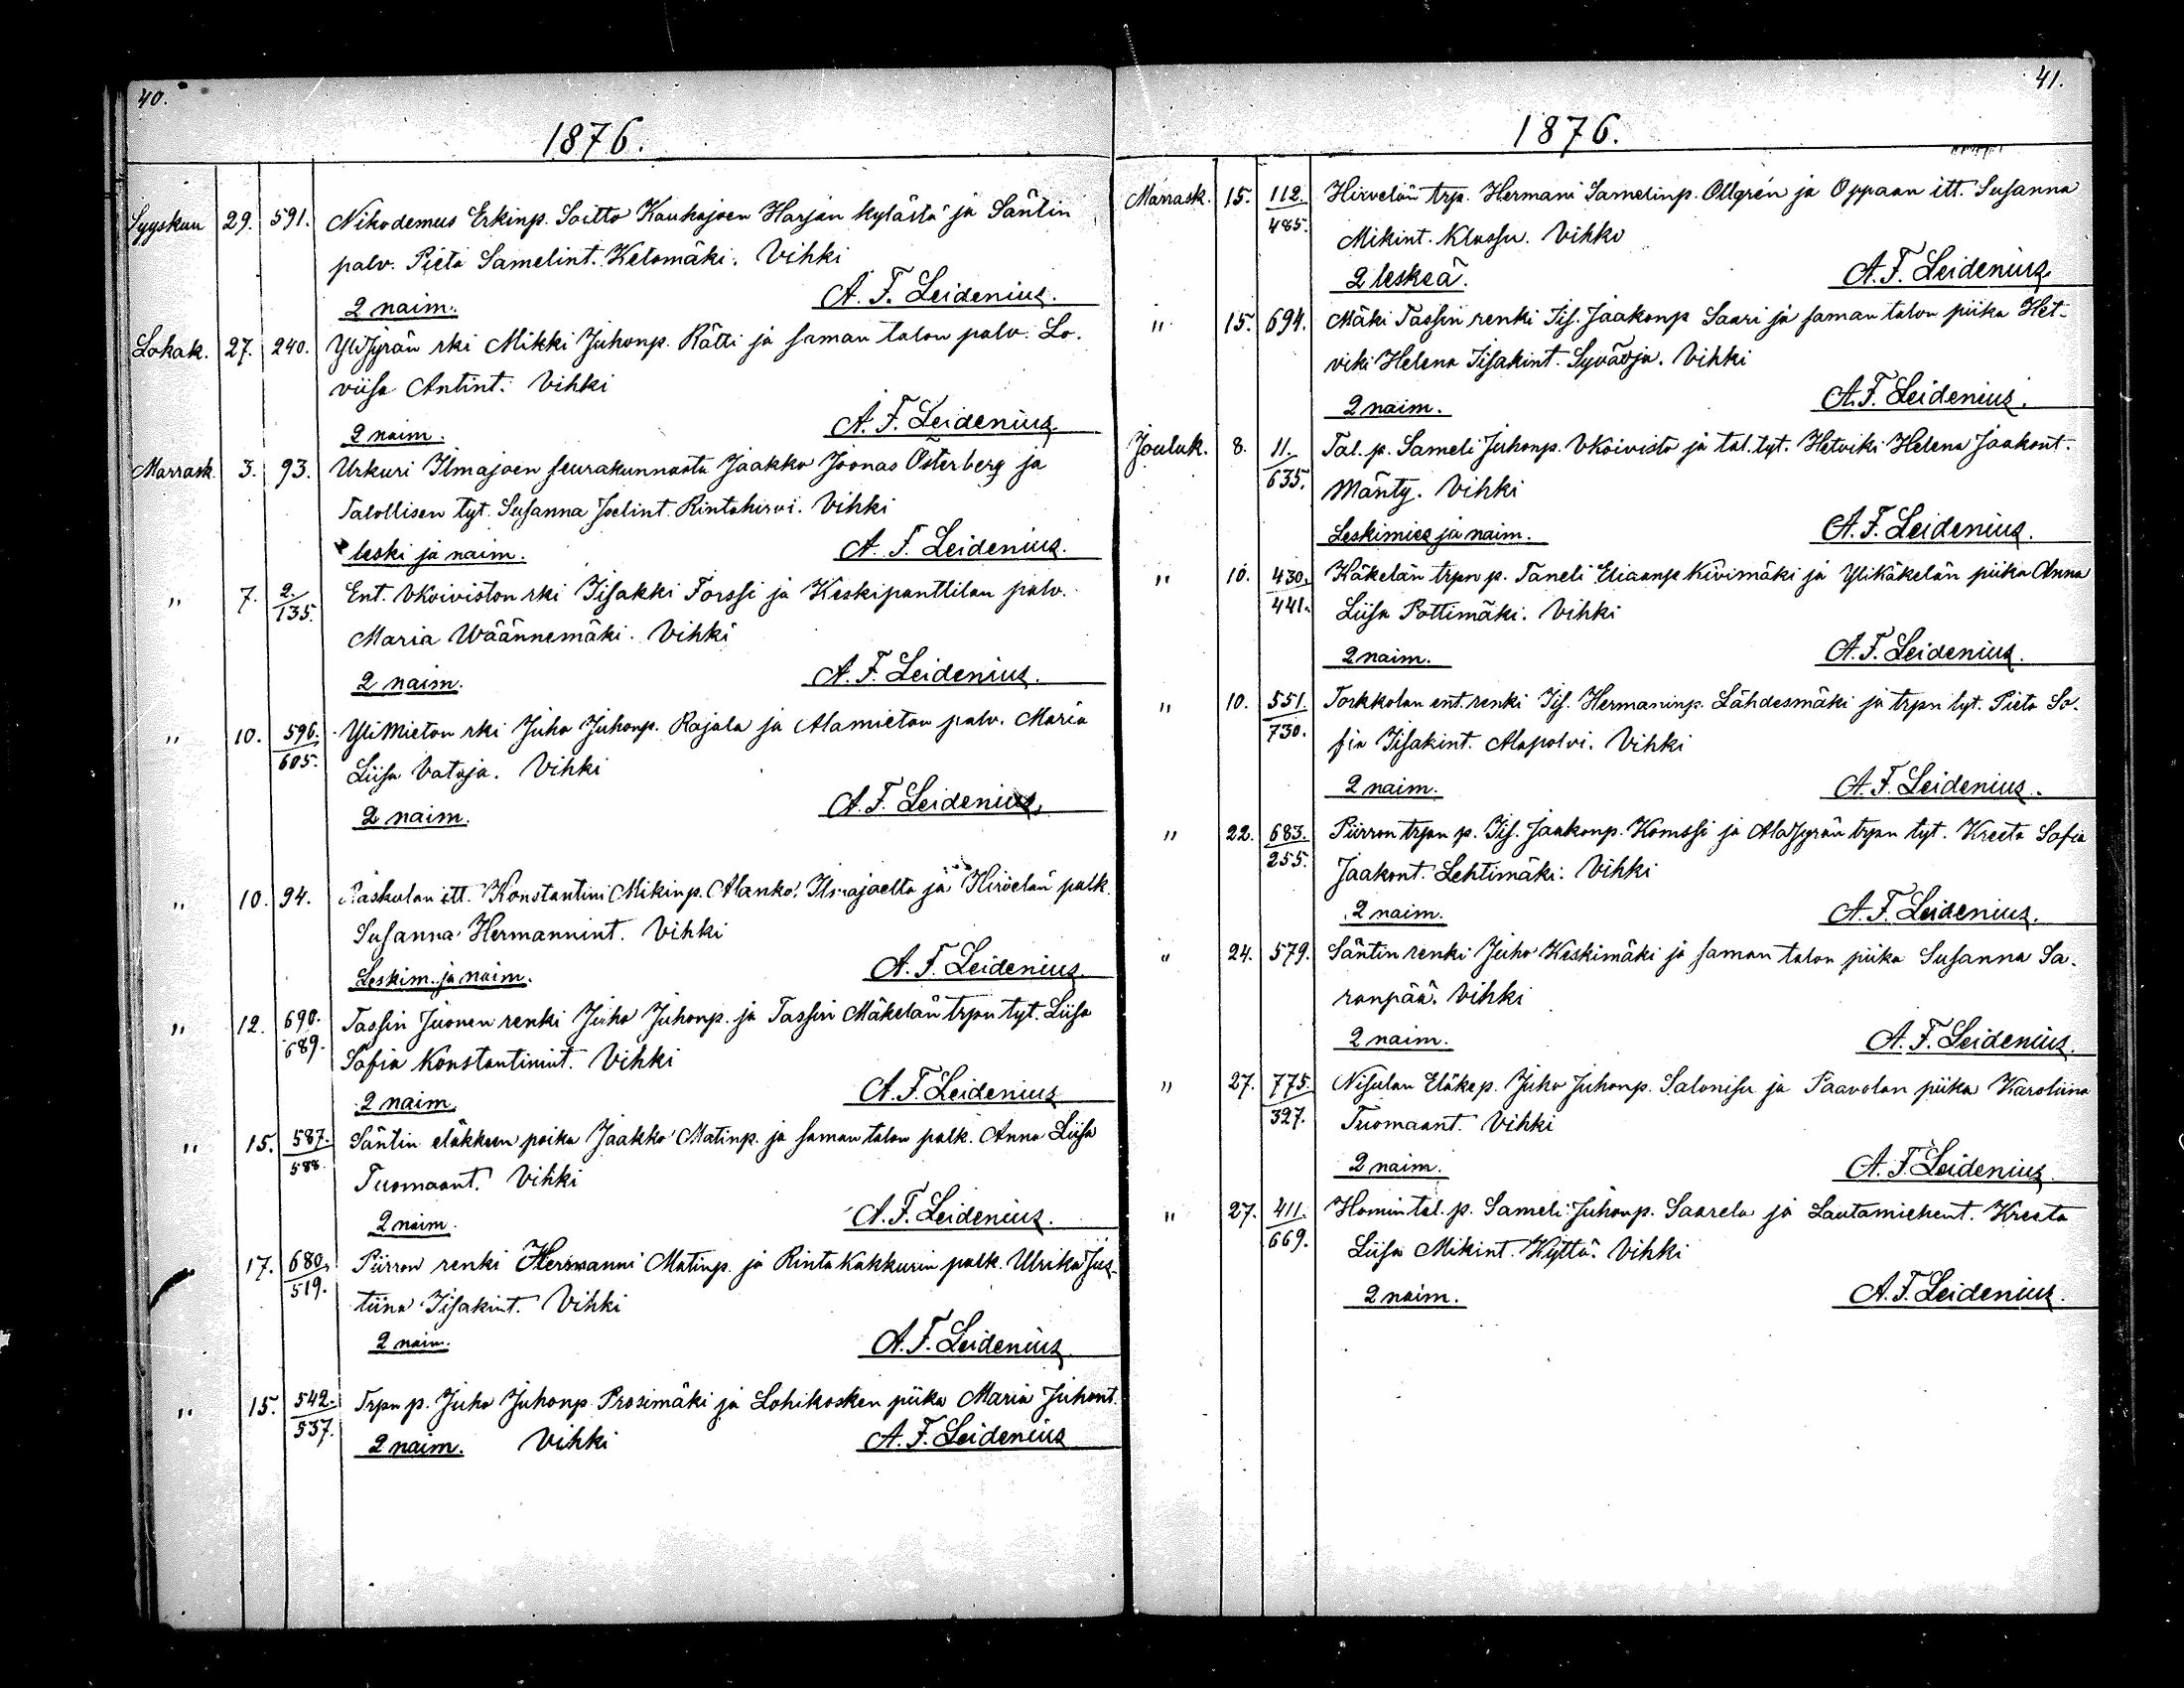 40.
1876.
Syyskuu 29. 591. Nikodemus Erkinp. Soitto Kauhajoen Harjan kylästä ja Säntin
palv. Pieta Samelint. Ketomäki. Vihki
2 naim. A. F. Leidenius.
Lokak. 27. 240. Yli Jyrän rki Mikki Juhonp. Rätti ja saman talon palv. Lo-
viisa Antint. Vihki
2 naim. A. F. Leidenius.
Marrask. 3. 93. Urkuri Ilmajoen seurakunnasta Jaakko Joonas Österberg ja
Talollisen tyt. Susanna Joelint. Rintahirvi. Vihki
leski ja naim. A. F. Leidenius.
" 7. 2./135. Ent. VKoiviston rki Iisakki Forssi ja Keskipanttilan palv.
Maria Wäännemäki. Vihki
2 naim. A. F. Leidenius.
" 10. 596./605. Yli Mieton rki Juho Juhonp. Rajala ja Alamieton palv. Maria
Liisa Vataja. Vihki
2 naim. A. F. Leidenius.
" 10. 94. Raskulan itt. Konstantini Mikinp. Alanko Ilmajoelta ja Hirvelän palk.
Susanna Hermannint. Vihki
Leskim. ja naim. A. F. Leidenius.
" 12. 690./689. Tassin Juonen renki Juho Juhonp. ja Tassin Mäkelän trpn tyt. Liisa
Sofia Konstantinint. Vihki
2 naim. A. F. Leidenius
" 15. 587./588. Säntin eläkkeen poika Jaakko Matinp. ja saman talon palk. Anna Liisa
Tuomaant. Vihki
2 naim. A. F. Leidenius.
17. 680./519. Piirron renki Hermanni Matinp. ja Rinta Kakkurin palk. Ulrika Jus-
tiina Iisakint. Vihki
2 naim. A. F. Leidenius
" 15. 542./537. Trpn p. Juho Juhonp. Prosimäki ja Lohikosken piika Maria Juhont.
2 naim. Vihki A. F. Leidenius
41.
1876.
Marrask. 15. 112./485. Hirvelän trp. Hermani Samelinp. Ollgrén ja Oppaan itt. Susanna
Mikint. Klassu. Vihki
2 leskeä. A. F. Leidenius.
" 15. 694. Mäki Tassin renki Iis. Jaakonp Saari ja saman talon piika Het-
viki Helena Iisakint. Syväoja. Vihki
2 naim. A. F. Leidenius.
Jouluk. 8. 11./635. Tal. p. Sameli Juhonp. VKoivisto ja tal. tyt. Hetviki Helena Jaakont.
Mänty. Vihki
Leskimies ja naim. A. F. Leidenius.
" 10. 430./441. Käkelän trpn p. Taneli Eliaanp Kivimäki ja Ylikäkelän piika Anna
Liisa Pottimäki. Vihki
2 naim. A. F. Leidenius.
" 10. 551./730. Torkkolan ent. renki Iis. Hermaninp. Lähdesmäki ja trpn tyt. Pieta So-
fia Iisakint. Alapolvi. Vihki
2 naim. A. F. Leidenius.
" 22. 683./255. Piirron trpn p. Iis. Jaakonp. Komssi ja Ala Jyrän trpn tyt. Kreeta Sofia
Jaakont. Lehtimäki. Vihki
2 naim. A. F. Leidenius.
" 24. 579. Säntin renki Juho Keskimäki ja saman talon piika Susanna Sa-
ranpää. Vihki
2 naim. A. F. Leidenius.
" 27. 775./327. Nisulan Eläkep. Juho Juhonp. Salonisu ja Paavolan piika Karoliina
Tuomaant. Vihki
2 naim. A. F. Leidenius
" 27. 411./669. Homin tal. p. Sameli Juhonp. Saarela ja Lautamiehent. Kreeta
Liisa Mikint. Kyttä. Vihki
2 naim. A. F. Leidenius.